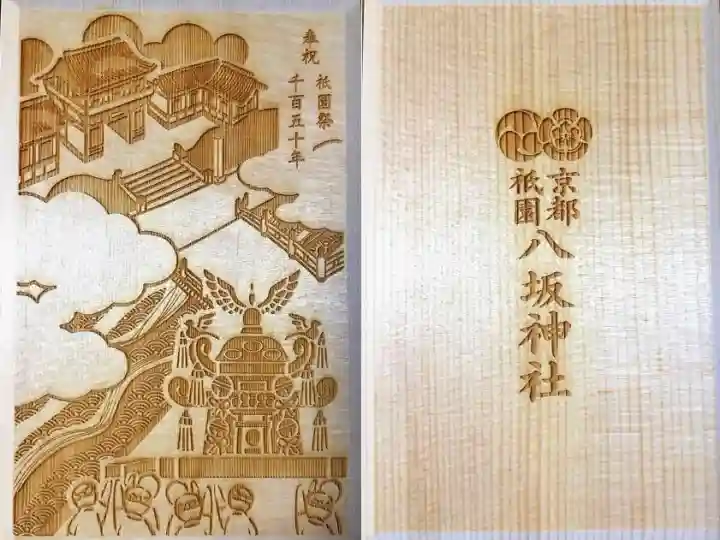 奉祝 祇園祭
千百五十年
京都
祇園
八坂神社